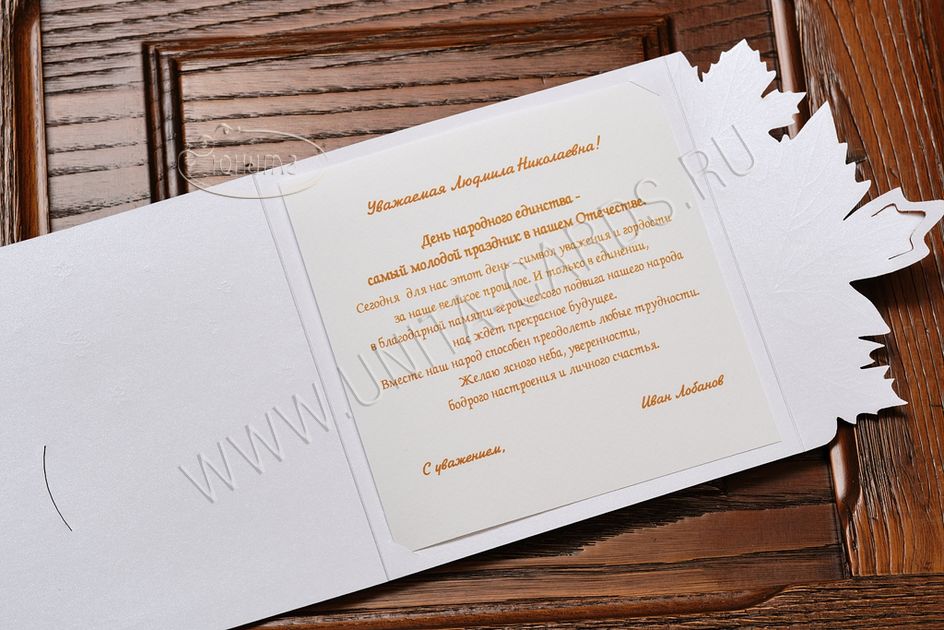 Юнита
Уважаемая Людмила Николаевна!
День народного единства -
самый молодой праздник в нашем Отечестве.
Сегодня для нас этот день - символ уважения и гордости
за наше великое прошлое. И только в единении,
в благодарной памяти героического подвига нашего народа
нас ждет прекрасное будущее.
Вместе наш народ способен преодолеть любые трудности.
Желаю ясного неба, уверенности,
бодрого настроения и личного счастья.
Иван Лобанов
С уважением,
WWW.UNITA-CARDS.RU